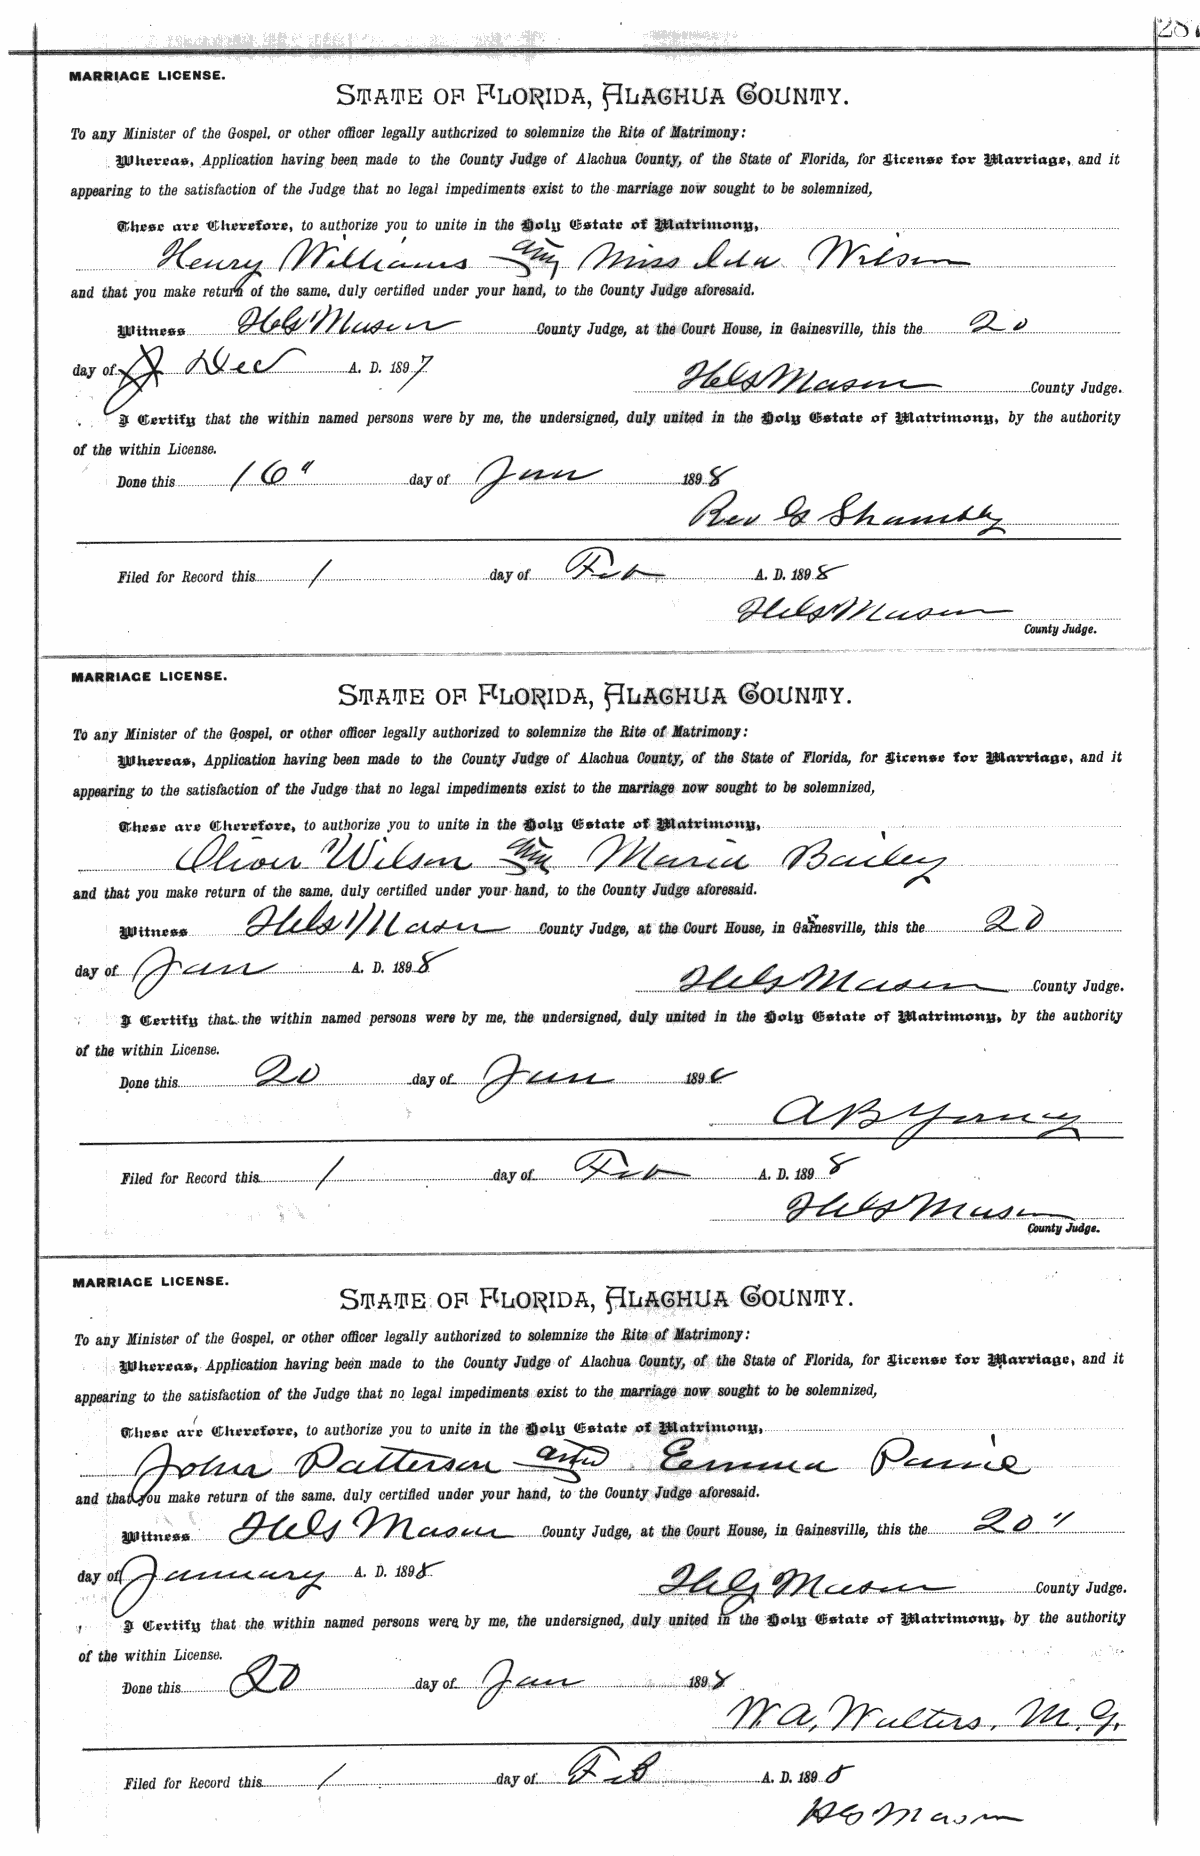 287
MARRIAGE LICENSE.
STATE OF FLORIDA, ALACHUA COUNTY.
To any Minister of the Gospel, or other officer legally authorized to solemnize the Rite of Matrimony:
Whereas, Application having been made to the County Judge of Alachua County, of the State of Florida, for License for Marriage, and it
appearing to the satisfaction of the Judge that no legal impediments exist to the marriage now sought to be solemnized,
These are Therefore, to authorize you to unite in the Holy Estate of Matrimony,
Henry Williams and Miss Ida Wilson
and that you make return of the same, duly certified under your hand, to the County Judge aforesaid.
Witness Mason County Judge, at the Court House, in Gainesville, this the 20
day of Dec A. D. 1897
Mason County Judge.
I Certify that the within named persons were by me, the undersigned, duly united in the Holy Estate of Matrimony, by the authority
of the within License.
Done this 16" day of Jan 1898
Rev G Shambly
Filed for Record this 1 day of Feb A. D. 1898
Mason
County Judge.
MARRIAGE LICENSE.
STATE OF FLORIDA, ALACHUA COUNTY.
To any Minister of the Gospel, or other officer legally authorized to solemnize the Rite of Matrimony:
Whereas, Application having been made to the County Judge of Alachua County, of the State of Florida, for License for Marriage, and it
appearing to the satisfaction of the Judge that no legal impediments exist to the marriage now sought to be solemnized,
These are Therefore, to authorize you to unite in the Holy Estate of Matrimony,
Oliver Wilson and Maria Bailey
and that you make return of the same, duly certified under your hand, to the County Judge aforesaid.
Witness Mason County Judge, at the Court House, in Gainesville, this the 20
day of Jan A. D. 1898
Mason County Judge.
I Certify that the within named persons were by me, the undersigned, duly united in the Holy Estate of Matrimony, by the authority
of the within License.
Done this 20 day of Jan 1898
A B Young
Filed for Record this 1 day of Feb A. D. 1898
Mason
County Judge.
MARRIAGE LICENSE.
STATE OF FLORIDA, ALACHUA COUNTY.
To any Minister of the Gospel, or other officer legally authorized to solemnize the Rite of Matrimony:
Whereas, Application having been made to the County Judge of Alachua County, of the State of Florida, for License for Marriage, and it
appearing to the satisfaction of the Judge that no legal impediments exist to the marriage now sought to be solemnized,
These are Therefore, to authorize you to unite in the Holy Estate of Matrimony,
John Patterson and Emma Paine
and that you make return of the same, duly certified under your hand, to the County Judge aforesaid.
Witness Mason County Judge, at the Court House, in Gainesville, this the 20"
day of January A. D. 1898
Mason County Judge.
I Certify that the within named persons were by me, the undersigned, duly united in the Holy Estate of Matrimony, by the authority
of the within License.
Done this 20 day of Jan 1898
W. A. Walters, M. G.
Filed for Record this 1 day of Feb A. D. 1898
Mason